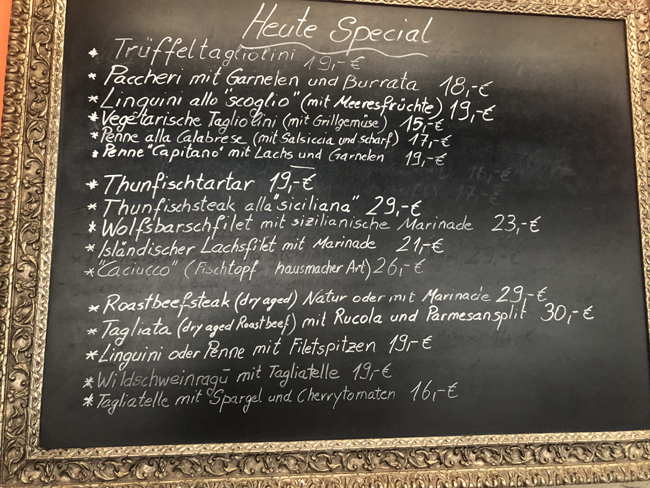 Heute Special
* Trüffeltagliolini 19,-€
* Paccheri mit Garnelen und Burrata 18,-€
* Linguini allo "scoglio" (mit Meeresfrüchte) 19,-€
* Vegetarische Tagliolini (mit Grillgemüse) 15,-€
* Penne alla Calabrese (mit Salsiccia und scharf) 17,-€
* Penne "Capitano" mit Lachs und Garnelen 19,-€
* Thunfischtartar 19,-€
* Thunfischsteak alla "siciliana" 29,-€
* Wolfsbarschfilet mit sizilianische Marinade 23,-€
* Isländischer Lachsfilet mit Marinade 21,-€
* "Caciucco" (Fischtopf hausmacher Art) 26,-€
* Roastbeefsteak (dry aged) Natur oder mit Marinade 29,-€
* Tagliata (dry aged Roastbeef) mit Rucola und Parmesansplit 30,-€
* Linguini oder Penne mit Filetspitzen 19,-€
* Wildschweinragù mit Tagliatelle 19,-€
* Tagliatelle mit Spargel und Cherrytomaten 16,-€